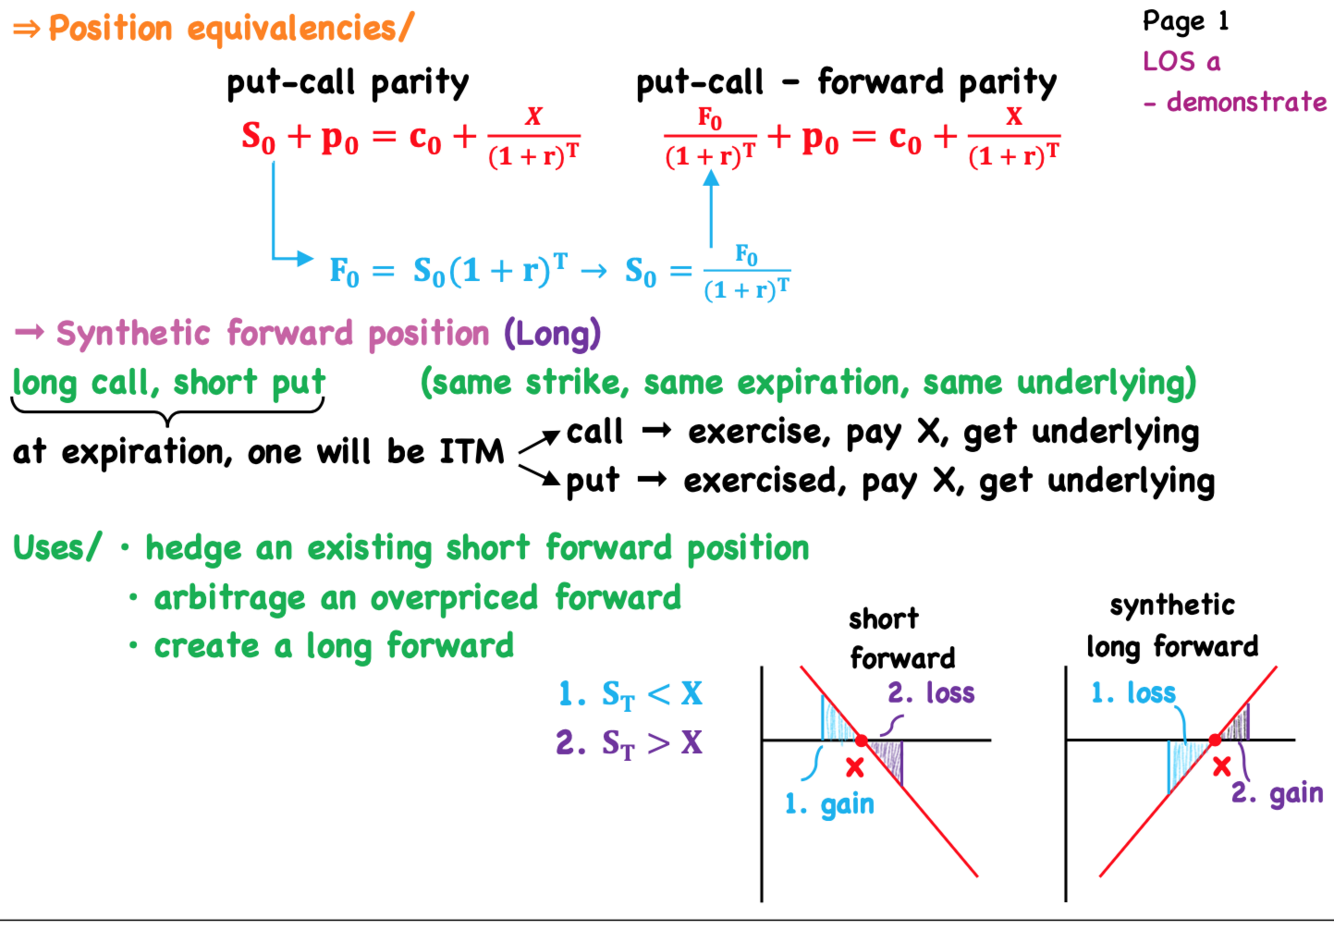 ⇒ Position equivalencies/
Page 1
LOS a
- demonstrate
put-call parity
put-call - forward parity
S₀ + p₀ = c₀ + X/(1 + r)ᵀ
F₀/(1 + r)ᵀ + p₀ = c₀ + X/(1 + r)ᵀ
F₀ = S₀(1 + r)ᵀ → S₀ = F₀/(1 + r)ᵀ
→ Synthetic forward position (Long)
long call, short put (same strike, same expiration, same underlying)
at expiration, one will be ITM
call → exercise, pay X, get underlying
put → exercised, pay X, get underlying
Uses/ · hedge an existing short forward position
· arbitrage an overpriced forward
· create a long forward
1. S_T < X
2. S_T > X
short
forward
2. loss
X
1. gain
synthetic
long forward
1. loss
X
2. gain